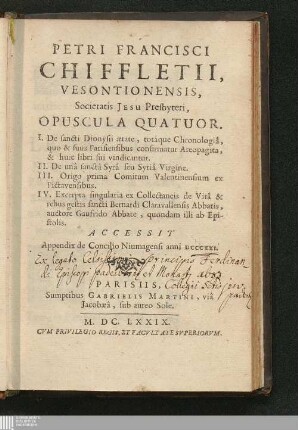 PETRI FRANCISCI
CHIFFLETII,
VESONTIONENSIS,
Societatis JESU Presbyteri,
OPUSCULA QUATUOR.
I. De sancti Dionysii ætate, totâque Chronologiâ,
quo & suus Parisiensibus confirmatur Areopagita,
& huic libri sui vindicantur.
II. De unâ sanctâ Syrâ seu Syriâ Virgine.
III. Origo prima Comitum Valentinensium ex
Pictavensibus.
IV. Excerpta singularia ex Collectaneis de Vitâ &
rebus gestis sancti Bernardi Claravallensis Abbatis,
auctore Gaufrido Abbate, quondam illi ab Epi-
stolis.
ACCESSIT
Appendix de Concilio Niumagensi anni
Ex legato Celsissimi Principis Ferdinan
Episcopi
PARISIIS, Collegii
Sumptibus GABRIELIS MARTINI, viâ
Jacobæâ, sub aureo Sole.
M. DC. LXXIX.
CVM PRIVILEGIO REGIS, ET FACVLTATE SVPERIORVM.